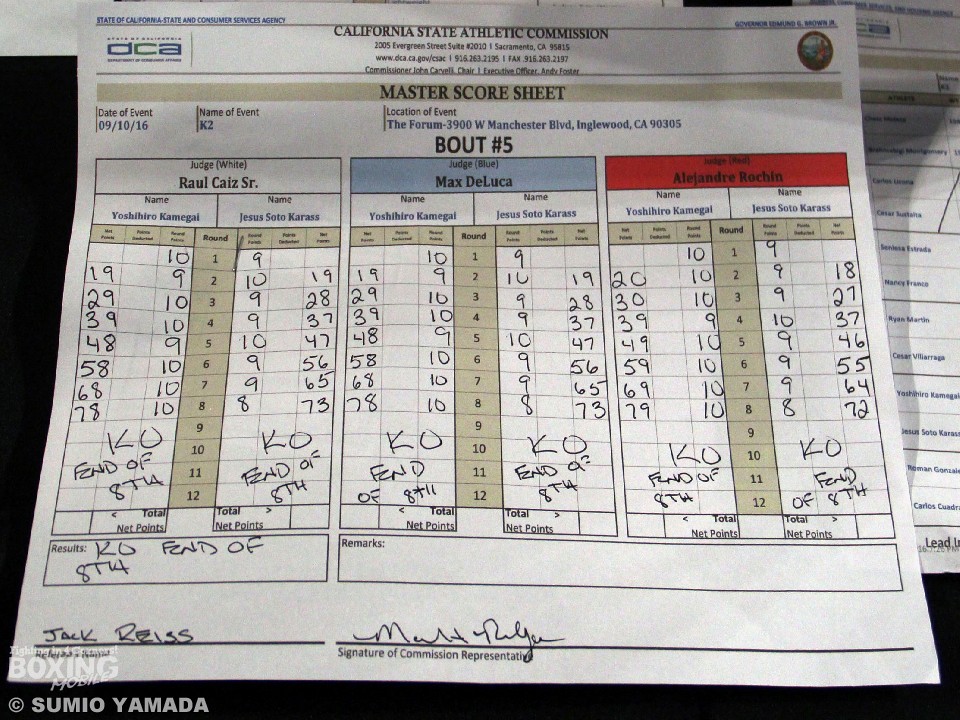 STATE OF CALIFORNIA-STATE AND CONSUMER SERVICES AGENCY
GOVERNOR EDMUND G. BROWN JR.
STATE OF CALIFORNIA
dca
DEPARTMENT OF CONSUMER AFFAIRS
CALIFORNIA STATE ATHLETIC COMMISSION
2005 Evergreen Street Suite #2010 | Sacramento, CA 95815
www.dca.ca.gov/csac | 916.263.2195 | FAX 916.263.2197
Commissioner John Carvelli, Chair | Executive Officer, Andy Foster
MASTER SCORE SHEET
Date of Event Name of Event Location of Event
09/10/16 K2 The Forum-3900 W Manchester Blvd, Inglewood, CA 90305
BOUT #5
Judge (White) Judge (Blue) Judge (Red)
Raul Caiz Sr. Max DeLuca Alejandre Rochin
Name Name Name Name Name Name
Yoshihiro Kamegai Jesus Soto Karass Yoshihiro Kamegai Jesus Soto Karass Yoshihiro Kamegai Jesus Soto Karass
Net Points Points Deducted Round Points Round Round Points Points Deducted Net Points Net Points Points Deducted Round Points Round Round Points Points Deducted Net Points Net Points Points Deducted Round Points Round Round Points Points Deducted Net Points
10 1 9 10 1 9 10 1 9
19 9 2 10 19 19 9 2 10 19 20 10 2 9 18
29 10 3 9 28 29 10 3 9 28 30 10 3 9 27
39 10 4 9 37 39 10 4 9 37 39 9 4 10 37
48 9 5 10 47 48 9 5 10 47 49 10 5 9 46
58 10 6 9 56 58 10 6 9 56 59 10 6 9 55
68 10 7 9 65 68 10 7 9 65 69 10 7 9 64
78 10 8 8 73 78 10 8 8 73 79 10 8 8 72
9 9 9
KO 10 KO KO 10 KO KO 10 KO
END OF 11 END OF END 11 END OF END OF 11 END
8TH 12 8TH OF 8TH 12 8TH 8TH 12 OF 8TH
< Total Total > < Total Total > < Total Total >
Net Points Net Points Net Points Net Points Net Points Net Points
Results: KO END OF
8TH
Remarks:
JACK REISS
Signature of Commission Representative
Fighting in 4 Corners!
BOXING
MOBILE
© SUMIO YAMADA
ATHLETE
Carlos Licona
Cesar Sustaita
Seniesa Estrada
Nancy Franco
Ryan Martin
Cesar Villarraga
Yoshihiro Kamegai
Jesus Soto Karass
Roman Gonzalez
Carlos Cuadra
Lead In